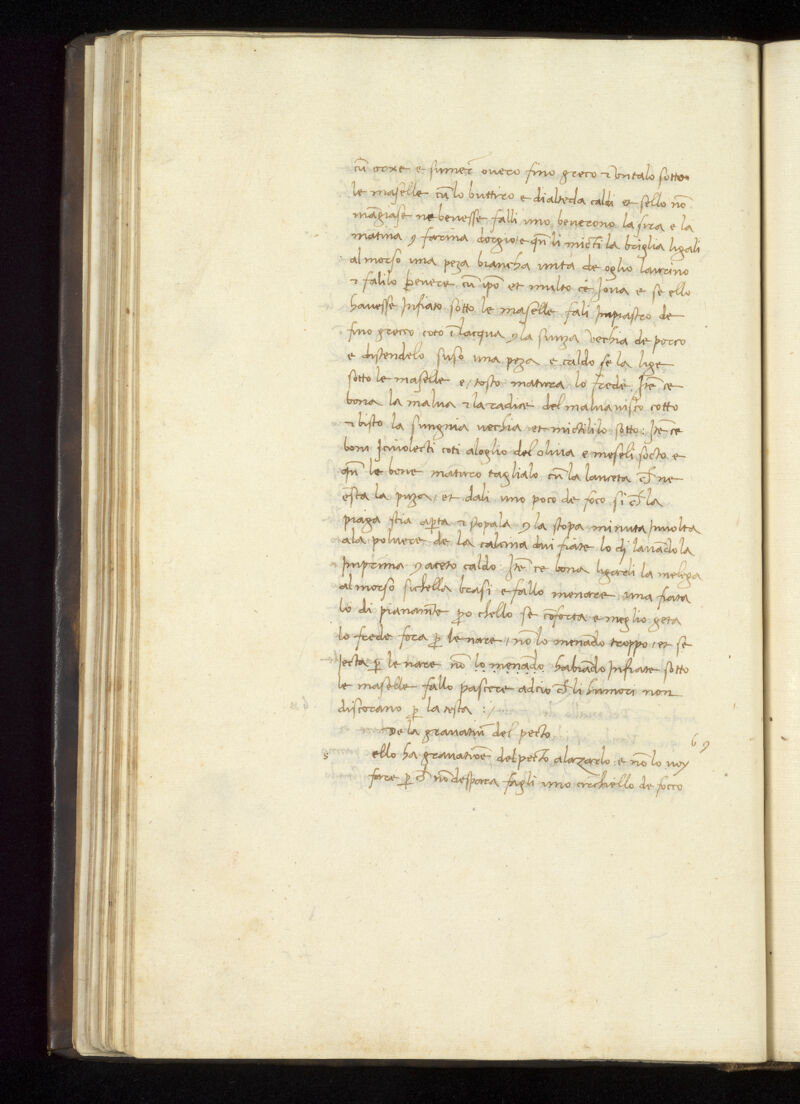 cū orze e sumēt overo fino greco & untalo sotto
le maselle cū lo buttiro e dialteda caldi et sello nō
māgiase ne bevesse falli uno beverono la sira e la
matina ꝯ farina dorgio e qn̄ li micti la briglia ligali
al morso una peza biancha unta de oglio laurino
& falilo bevere cū ip̄o et multo ce iova e se ello
havesse infiato sotto le maselle fali impiastro de
fino greco coto ī lacqua ꝯ la sunza vechia de porco
e distendelo suso una peza e caldo se la lige
sotto le maselle e tosto matura lo frede. Itē ce
bona la malva & la radice del malvavisco cotto
& bisto la sungnia vechia et mictililo sotto: Itē ce
boni coti a loglio del oliva e meseli socto e
qn̄ le bene maturo taglialo cū la lanceta ch̄ ne
esca la puza et dali uno poco de foco si ch̄ la
piaga stia ap̄ta & stopala ꝯ la stopa minuta involta
a la polvere de la calcina dui fiate lo dj lavādola
imprima ꝯ aceto caldo: Itē ce bona ligarli la
al morso sichella brasi e fallo menare una fiata
lo di pianamēte p̄o chello se cōforta e meglio geta
lo frede fora p̄ le nare, nō lo menādo troppo, et se
iecta p̄ le nare nō lo menādo habiādo infiate sotto
le maselle fallo pascere adcio ch̄ li humori non
discorano p̄ la testa :/
De la gravatiō del pecto
s ello ha gravatiōe del pecto alazarlo e nō lo voy
fare p̄ ch̄ nō despara fagli uno circhiello de focco